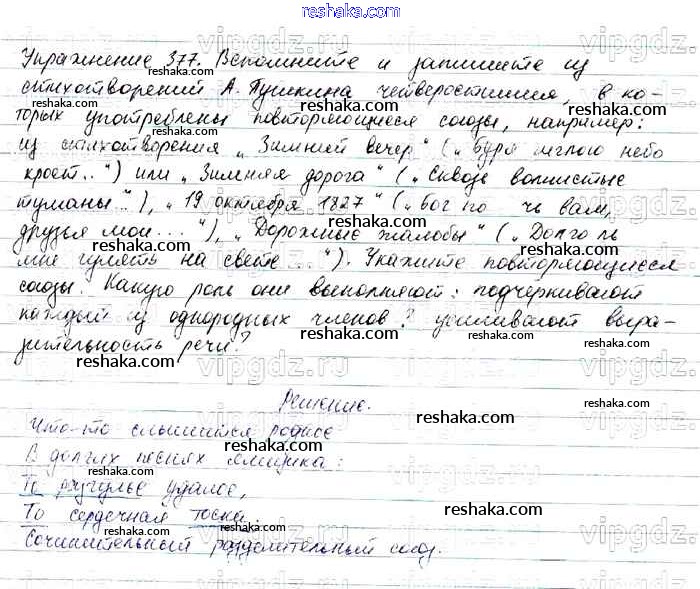 reshaka.com
Упражнение 377. Вспомните и запишите из
стихотворений А. Пушкина четверостишия, в ко-
торых употреблены повторяющиеся союзы, например:
из стихотворения „Зимний вечер" („Буря мглою небо
кроет.." ) или „Зимняя дорога" („Сквозь волнистые
туманы..." ), „19 октября 1827" („Бог по чь вам,
друзья мои..." ), „Дорожные жалобы" („Долго ль
мне гулять на свете..." ). Укажите повторяющиеся
союзы. Какую роль они выполняют: подчёркивают
каждый из однородных членов? усиливают выра-
зительность речи?
Решение.
Что-то слышится родное
В долгих песнях ямщика:
То разгулье удалое,
То сердечная тоска.
Сочинительный разделительный союз.